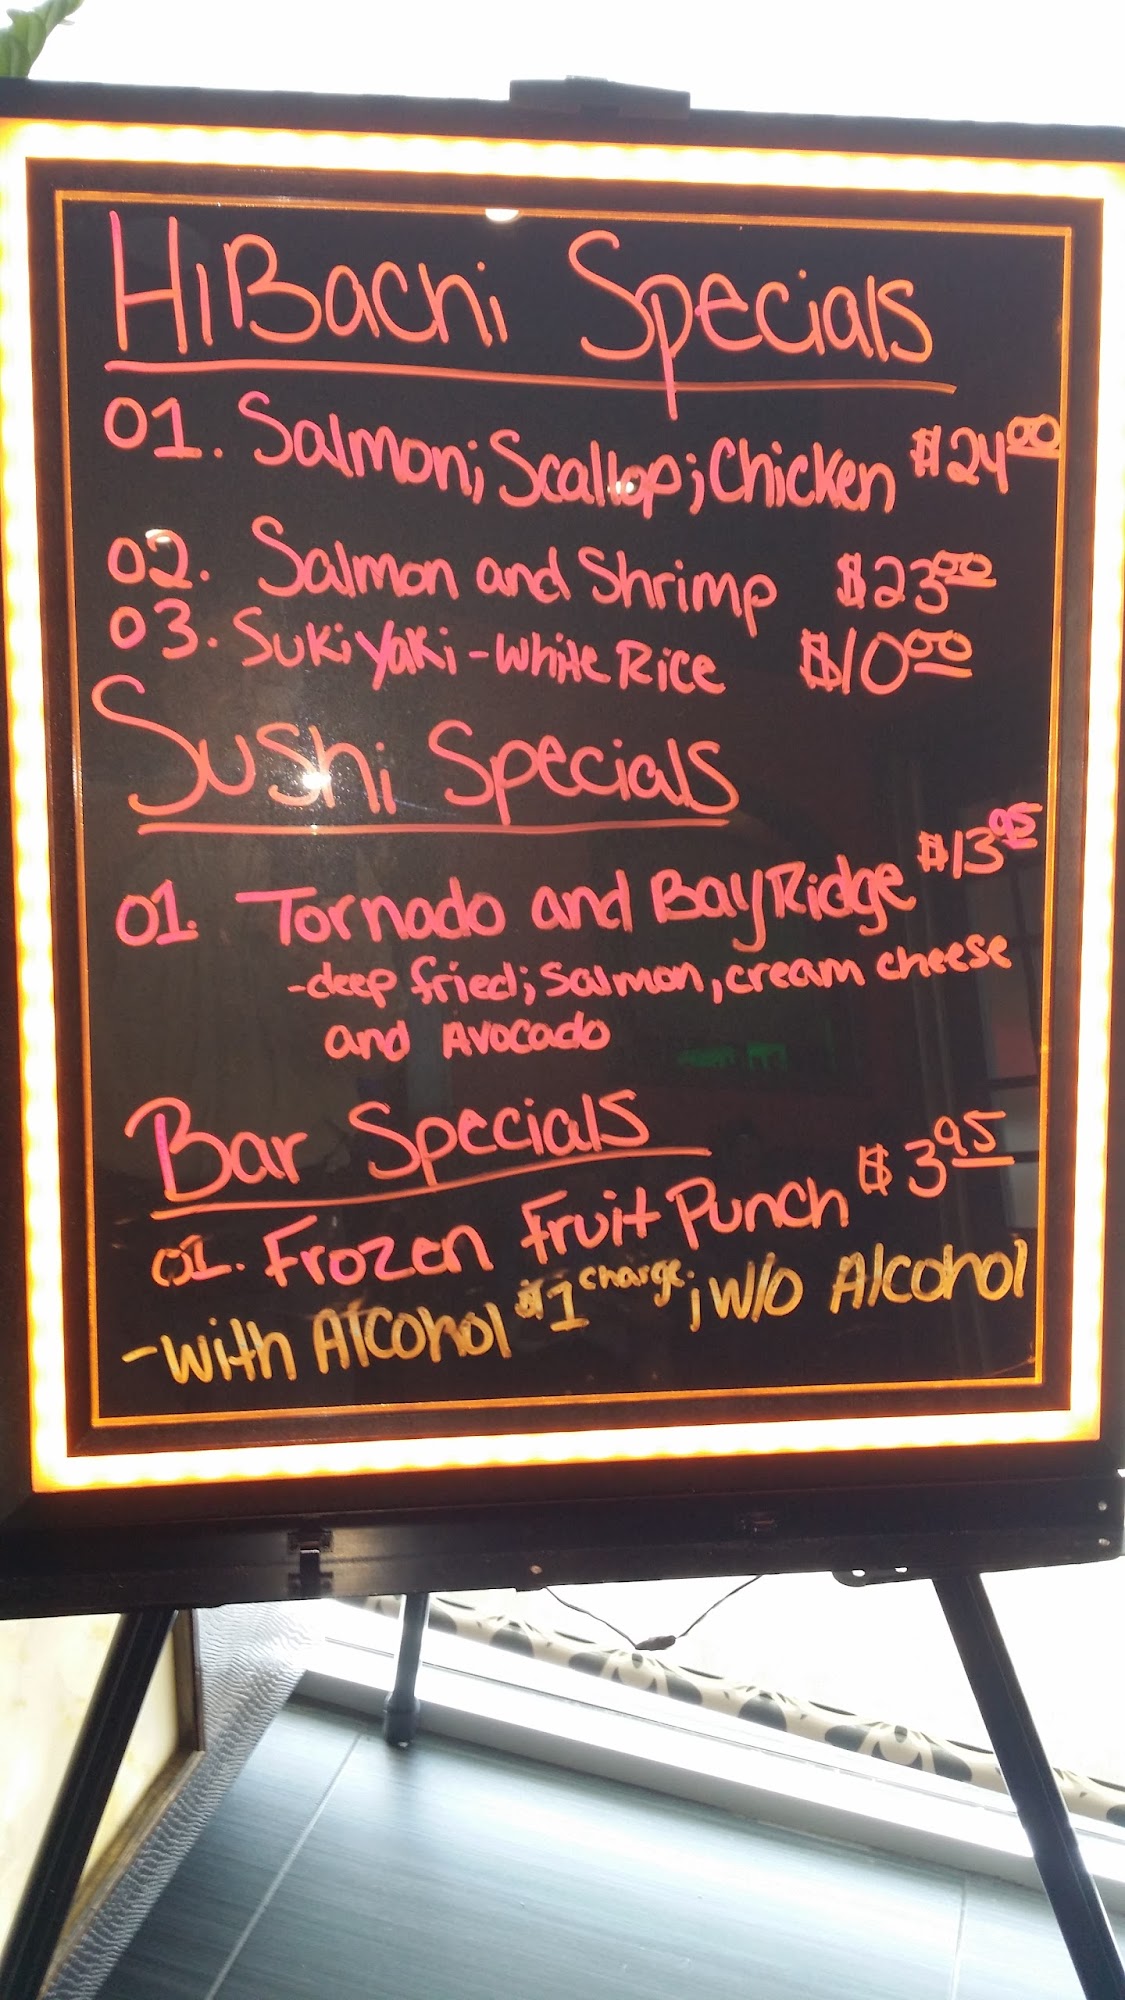 HiBachi Specials
01. Salmon; Scallop; Chicken $24.00
02. Salmon and Shrimp $23.00
03. Sukiyaki - White Rice $10.00
Sushi Specials
01. Tornado and Bay Ridge $13.95
- deep fried; Salmon, cream cheese
and Avocado
Bar Specials
01. Frozen Fruit Punch $3.95
- with Alcohol $1 charge; w/o Alcohol